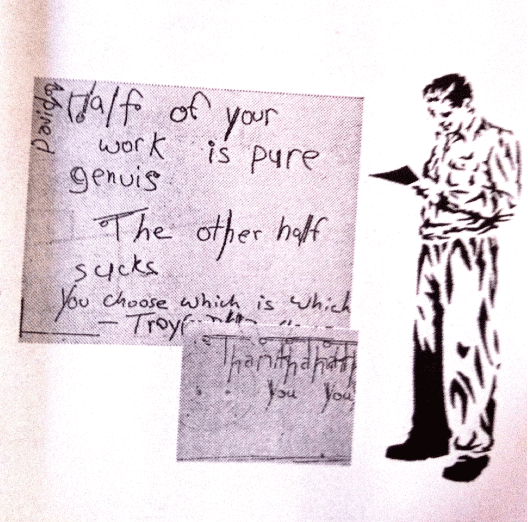 Half of your
work is pure
genuis
The other half
sucks
You choose which is which
— Troy
You You